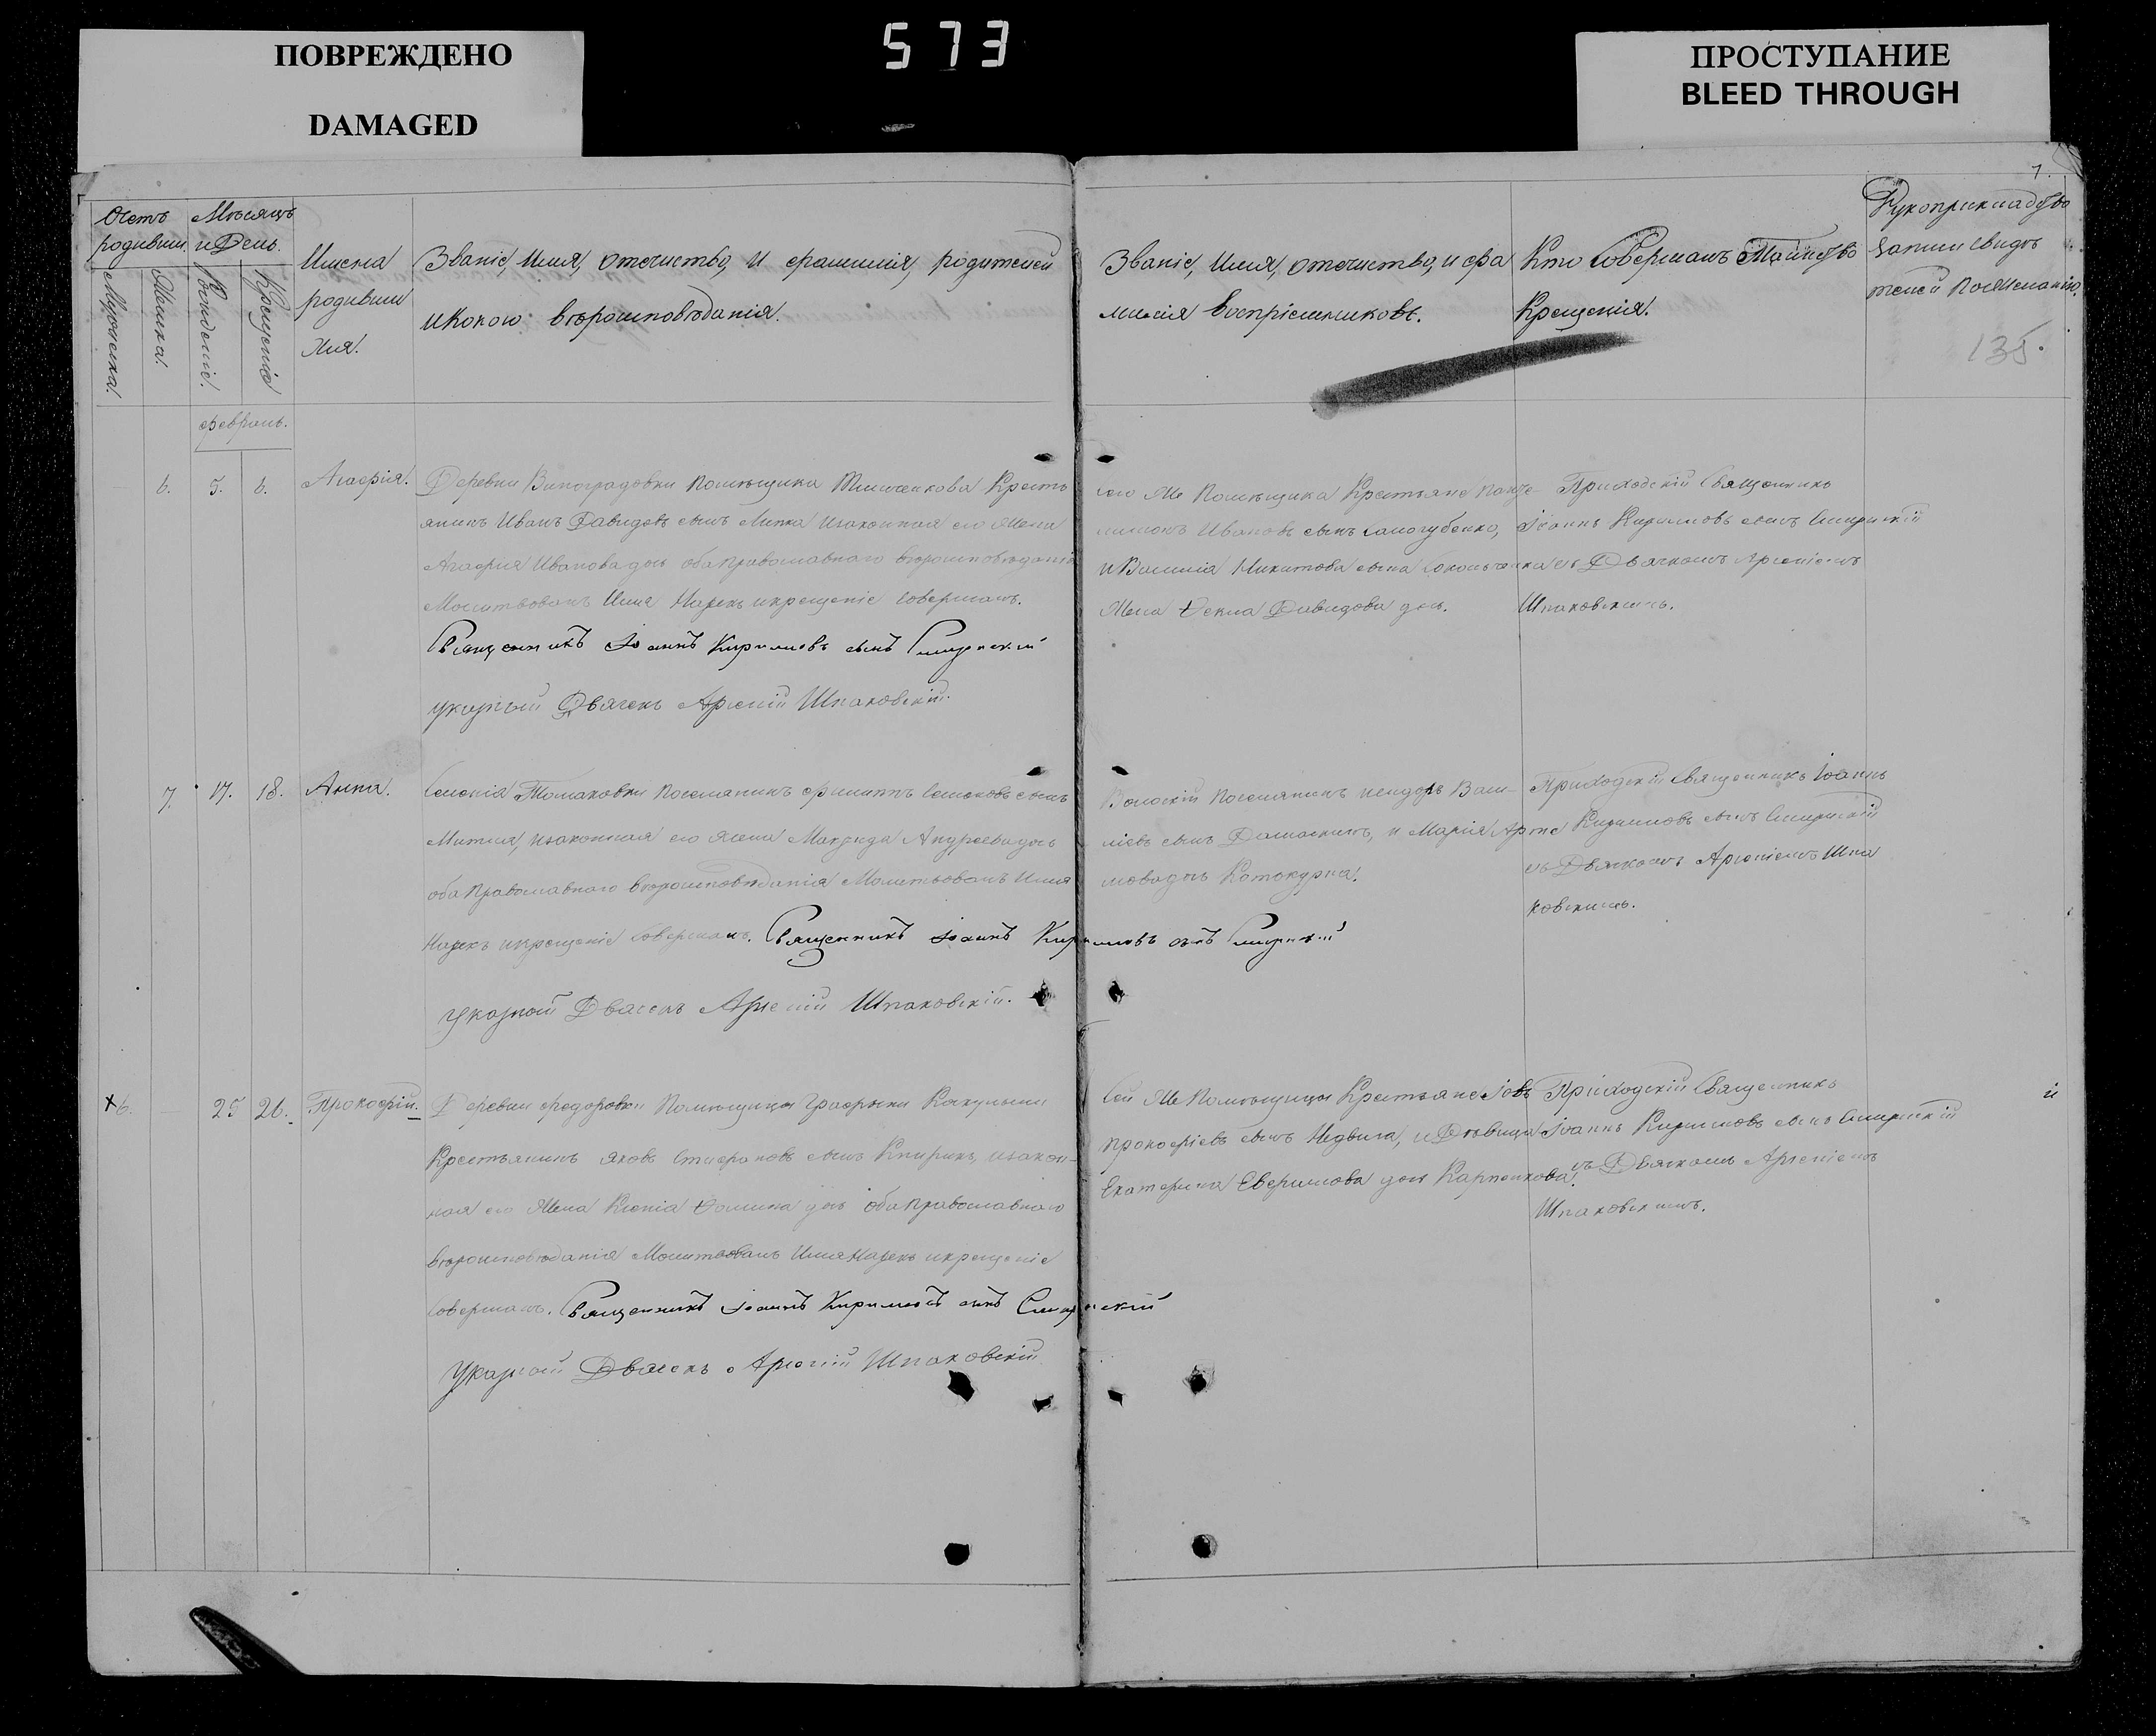 ПОВРЕЖДЕНО
DAMAGED
573
ПРОСТУПАНИЕ
BLEED THROUGH
7.
Счетъ родивши.
Мужеска.
Женска.
Мѣсяцъ и День.
Рожденіе.
Крещеніе
Имена
родивши
хся.
Званіе, Имя, отечиство, и фамилія, родителей
икокого вѣроисповѣданія.
Званіе, Имя, отечиство, и фа
милія воспріемниковъ.
Кто совершалъ Таинство
Крещенія.
Рукоприкладство
записи свидѣ
телей по желанію.
135.
февраль.
6. 5. 6. Агафія.
Деревни Виноградовки помѣщика Кресть
янинъ Иванъ Давидовъ сынъ Липка изаконная его жена
Агафія Иванова дочь оба православнаго вѣроисповѣданія
Молитвовалъ Имя Нарекъ икрещеніе совершалъ.
Священникъ Іоаннъ Кирилловъ сынъ
указный Дьячекъ Арсеній Шпаковскій.
того же Помѣщика Крестьяне Панте
лимонъ Ивановъ сынъ Самогубенко,
и Василія Никитова сына
Жена Ѳекла Давидова дочь.
Приходскій Священникъ
Іоаннъ Кирилловъ сынъ
съ Дьячкомъ Арсеніемъ
Шпаковскимъ.
7. 17. 18. Анна.
Селенія Томаковки поселянинъ филиппъ сынъ
изаконная его жена Макрида Андреева дочь
оба православнаго вѣроисповѣданія Молитвовалъ Имя
Нарекъ икрещеніе совершалъ. Священникъ Іоаннъ Кирилловъ сынъ
указной Дьячекъ Арсеній Шпаковскій.
поселянинъ Исидоръ Васи
ліевъ сынъ и Марія Арте
мова дочь
Приходскій Священникъ Іоаннъ
Кирилловъ сынъ
съ Дьячкомъ Арсеніемъ Шпа
ковскимъ.
х 6. 25 26. Прокофій.
Деревни федоровки Помѣщицы Графыни
Крестьянинъ Яковъ Стефановъ сынъ Кнырикъ, изакон
ная его жена Ксенія Ѳомина дочь оба православнаго
вѣроисповѣданія Молитвовалъ Имя Нарекъ икрещеніе
совершалъ. Священникъ Іоаннъ Кирилловъ сынъ
Указной Дьячекъ Арсеній Шпаковскій
Сей же Помѣщицы Крестьяне Іовъ
Прокофіевъ сынъ и Дѣвица
Екатерина дочь Карпенкова.
Приходскій Священникъ
Іоаннъ Кирилловъ сынъ
съ Дьячкомъ Арсеніемъ
Шпаковскимъ.